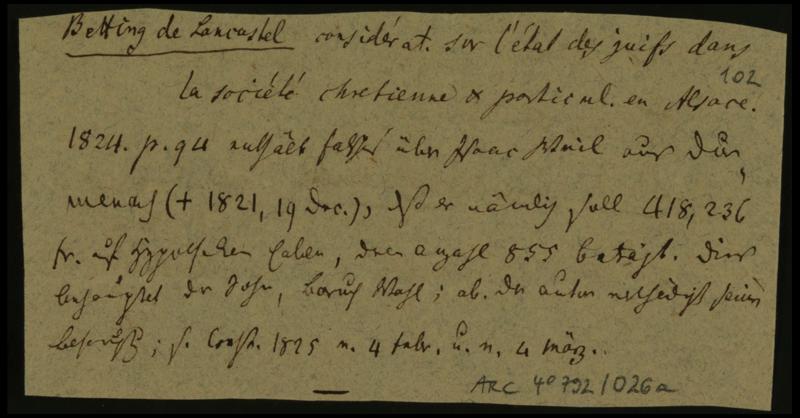 Betting de Lancastel considérat. sur l'état des juifs dans
102
la société chretienne & particul. en Alsace.
1824. p. 94 enthält falsches über Isaac Weil aus Dur-
menach († 1821, 19 Dec.), daß er nämlich soll 418,236
fr. auf Hypotheken haben, deren anzahl 855 beträgt. Dies
der Sohn, Baruch Weil; ab. der autor vertheidigt seine
; s. 1825 n. 4 febr. u. n. 4 März.
ARC 4° 792 / 026a